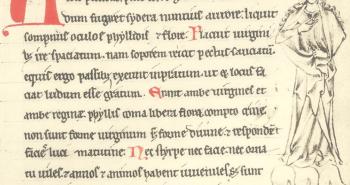 dum fuget sydera nuncius aurore: liquit
sompnus oculos phyllidis & flore. Placuit virgini
b; ire spaciatum. nam soporem reicit pectus sauciatum
equis ergo passib; exeunt in pratum. ut & locus fa
ciat ludum esse gratum. Eunt ambe virgines et
ambe regine. phyllis coma libera flora compto crine.
non sunt forme virginum s; forme divine. & respondent
facies luci matutine. Nec stirpe nec facie nec orna
tu viles & annos & animos habent iuveniles. s; sunt